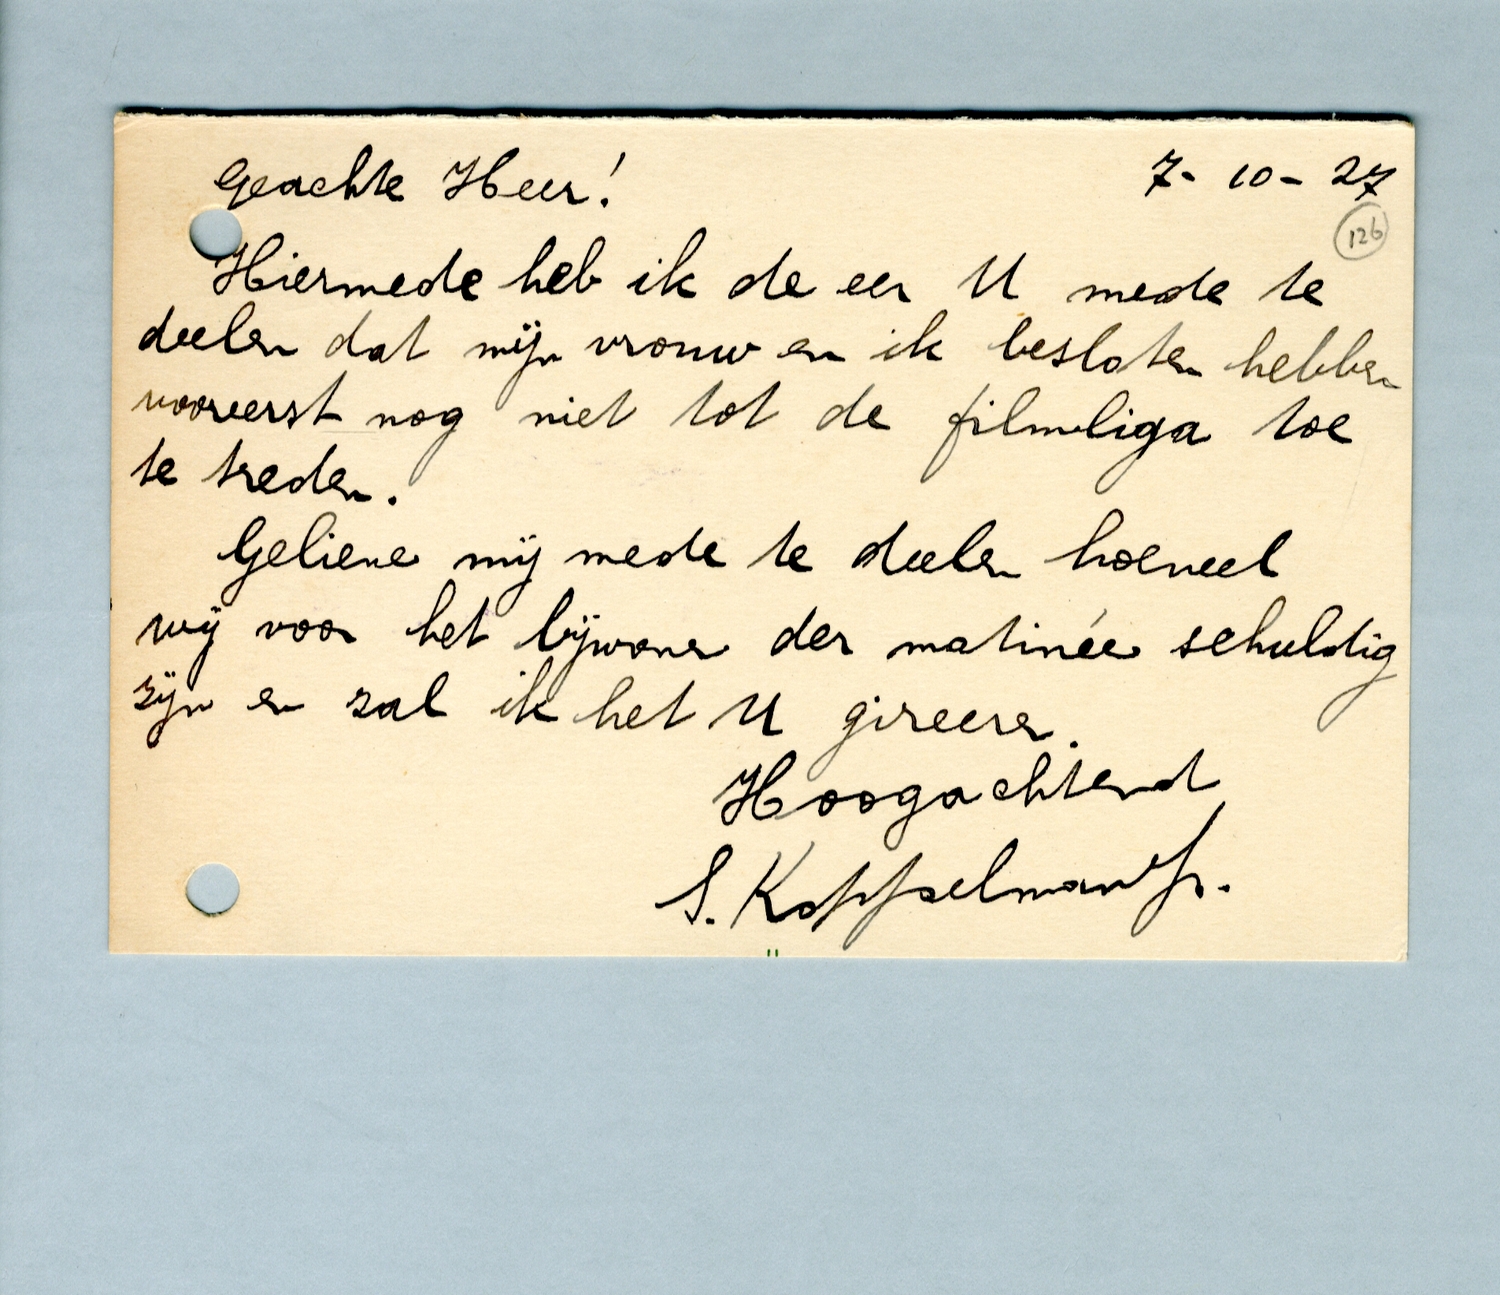 Geachte Heer! 7-10-27
126
Hiermede heb ik de eer U mede te
deelen dat mijn vrouw en ik besloten hebben
vooreerst nog niet tot de filmliga toe
te treden.
Gelieve mij mede te deelen hoeveel
wij voor het bijwonen der matinée schuldig
zijn en zal ik het U gireeren.
Hoogachtend
S. Koppelman Jr.